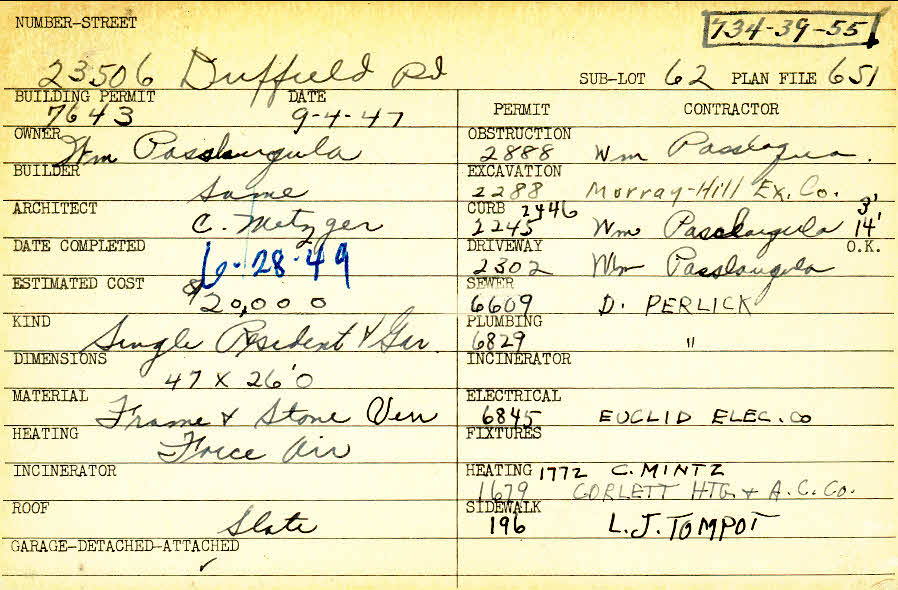 NUMBER-STREET
734-39-55
23506 Duffield Rd
SUB-LOT 62 PLAN FILE 651
BUILDING PERMIT DATE
7643 9-4-47
PERMIT CONTRACTOR
OWNER
Wm Passlaugula
BUILDER
Same
ARCHITECT
C. Metzger
DATE COMPLETED
6-28-49
ESTIMATED COST
$20,000
KIND
Single Resident & Gar.
DIMENSIONS
47 X 26'0
MATERIAL
Frame & Stone Ven
HEATING
Force Air
INCINERATOR
ROOF
Slate
GARAGE-DETACHED-ATTACHED
✓
OBSTRUCTION
2888 Wm
EXCAVATION
2288 Murray-Hill Ex. Co.
CURB 2446 3'
2245 Wm Passlaugula 14'
DRIVEWAY O.K.
2302 Wm Passlaugula
SEWER
6609 D. PERLICK
PLUMBING
6829 "
INCINERATOR
ELECTRICAL
6845 EUCLID ELEC. CO
FIXTURES
HEATING 1772 C. MINTZ
1679 CORLETT HTG. & A.C. CO.
SIDEWALK
196 L. J. TOMPOT